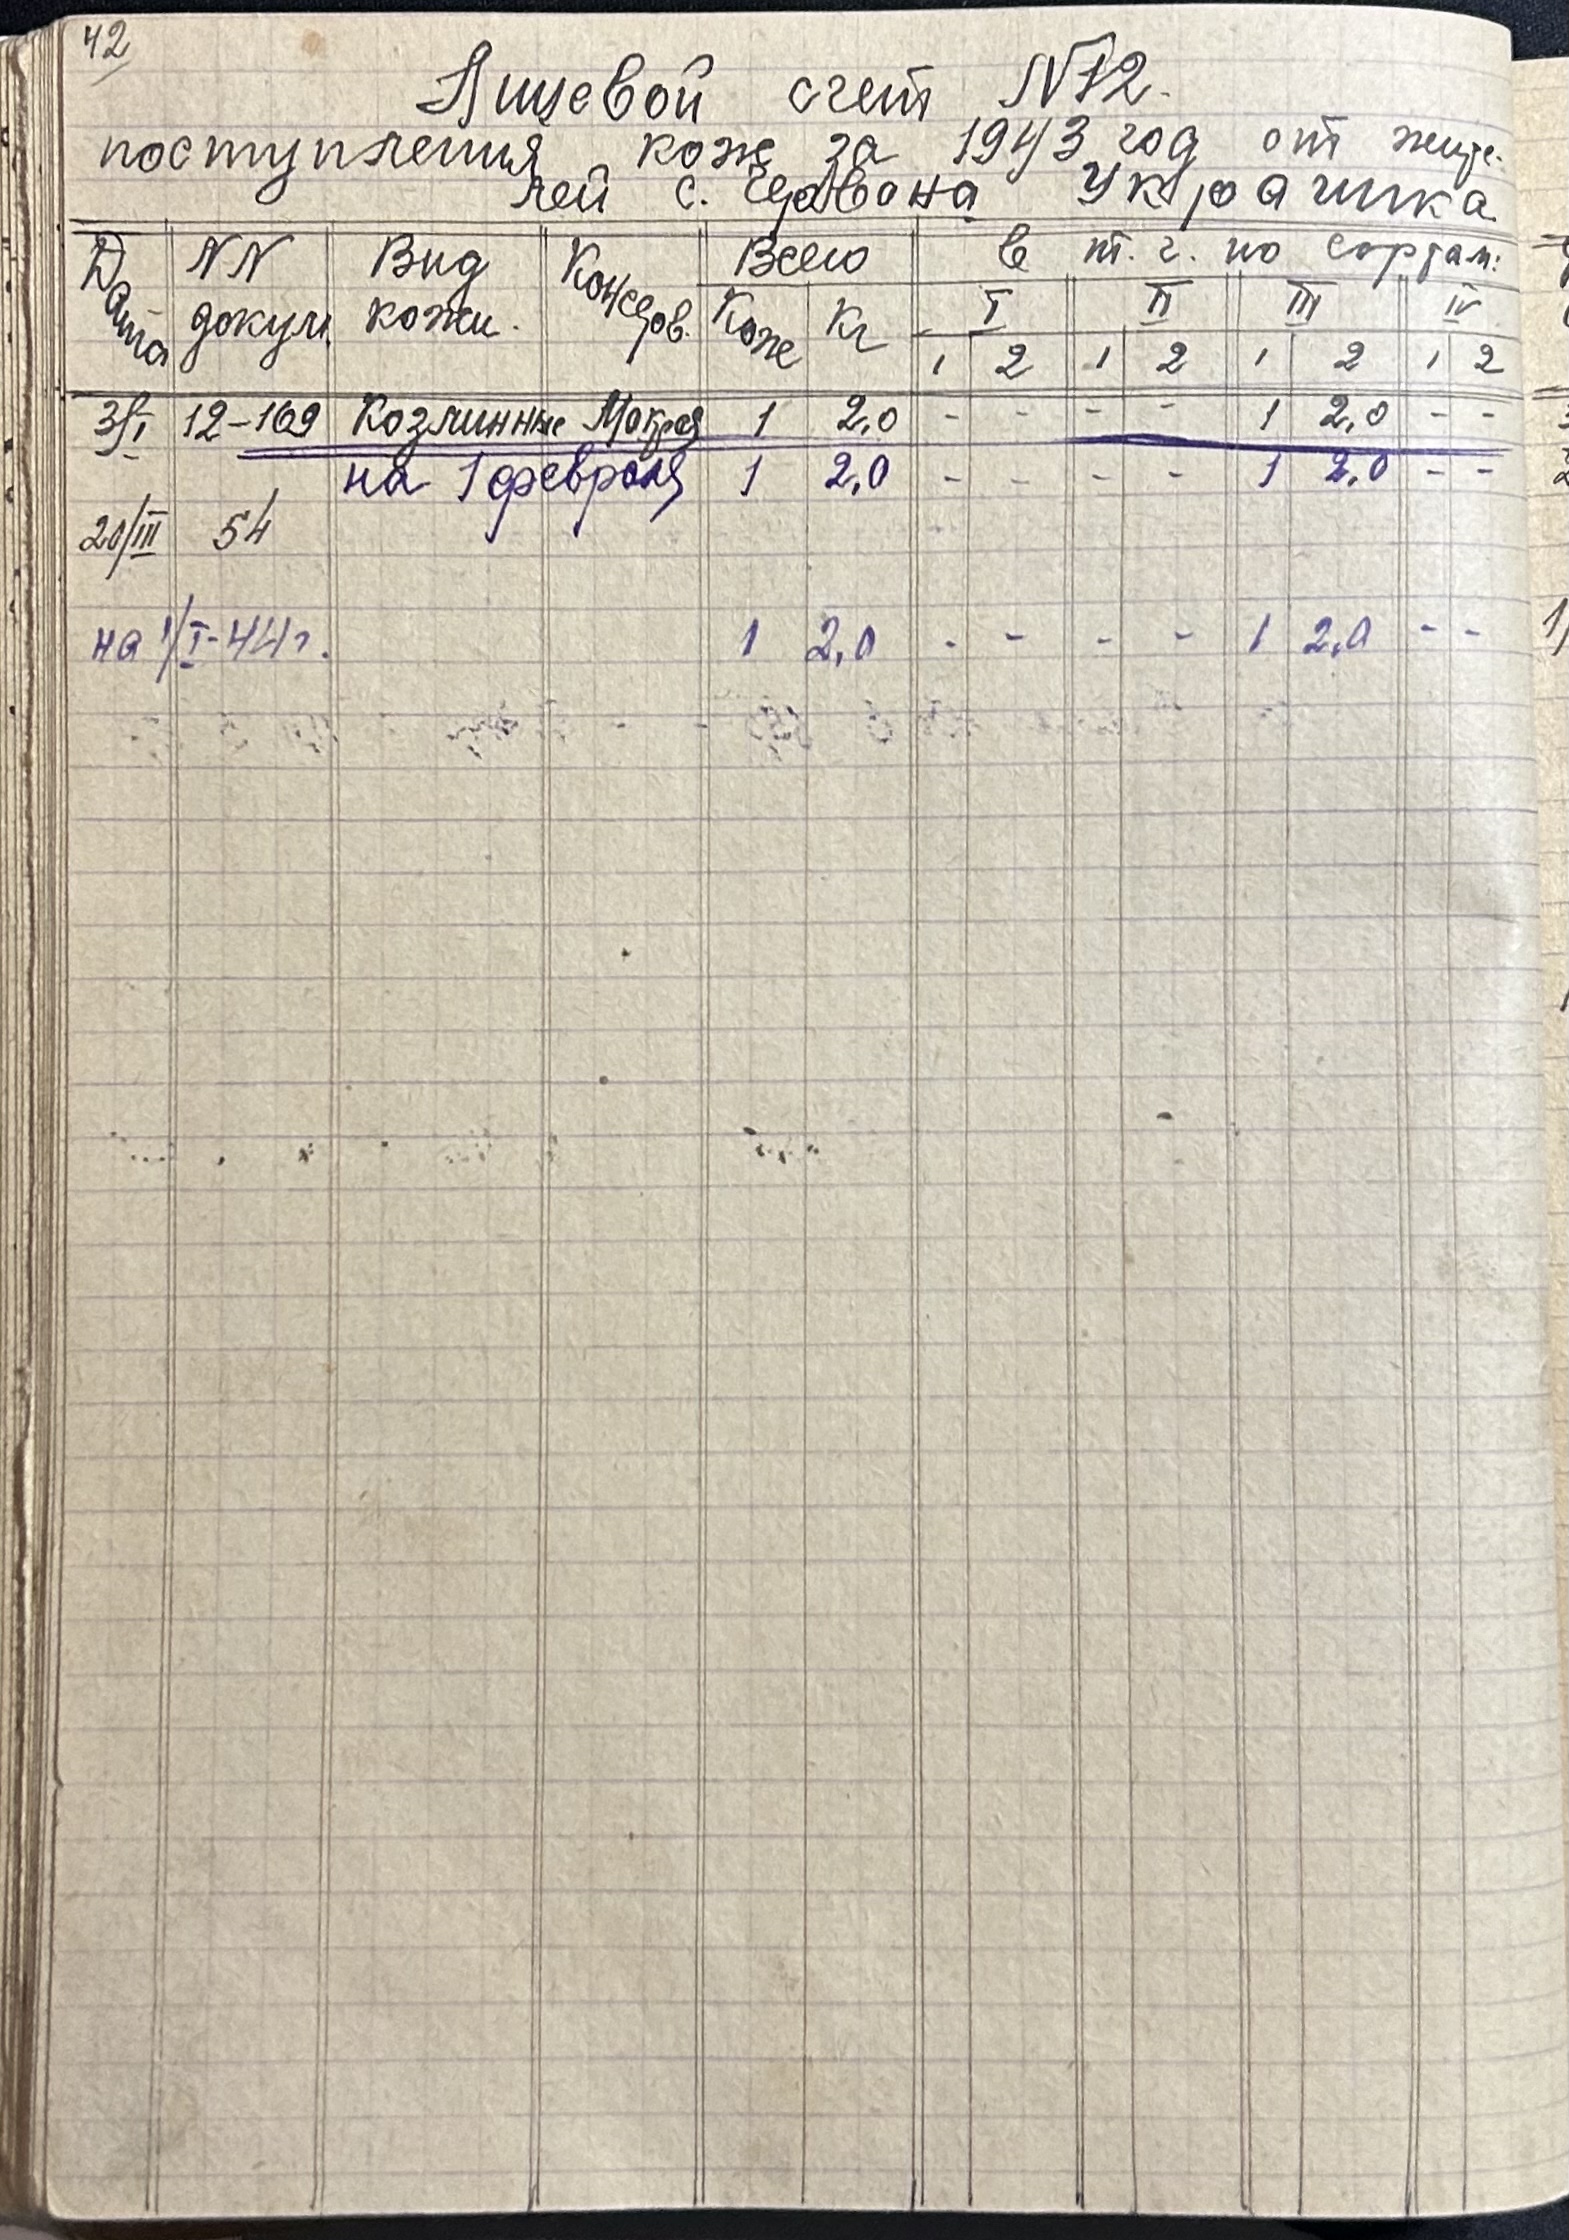 42
Лицевой счет N12.
поступления кож за 1943 год от жите-
лей с. Червона Украинка
Дата NN докум. Вид кожи. Консеров. Всего в т. ч. по сортам:
Кож Кг I II III IV
1 2 1 2 1 2 1 2
31/I 12-169 Козлинные Мокрая 1 2,0 - - - - 1 2,0 - -
на 1 февраля 1 2,0 - - - - 1 2,0 - -
20/III 54
на 1/I-44г. 1 2,0 - - - - 1 2,0 - -